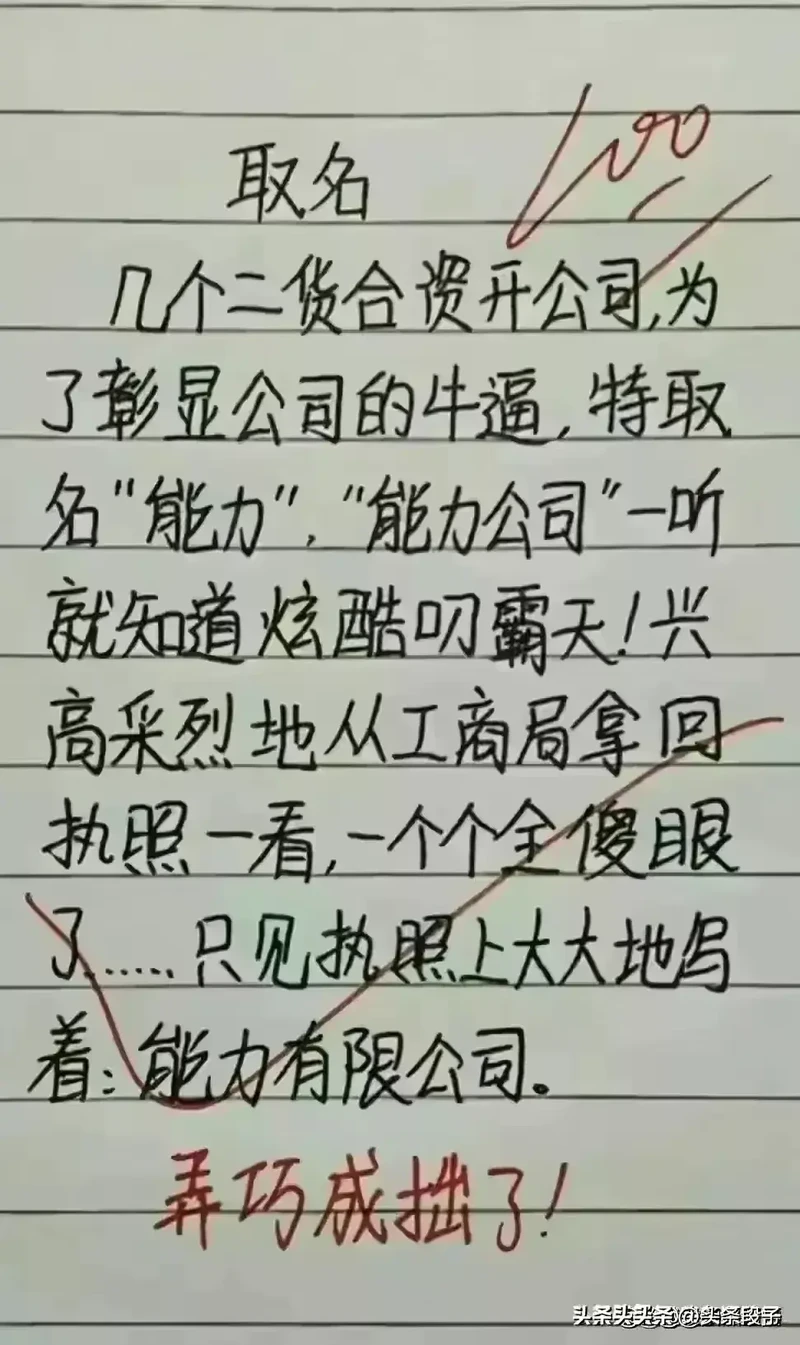 取名
100
几个二货合资开公司,为
了彰显公司的牛逼,特取
名"能力","能力公司"一听
就知道炫酷叼霸天!兴
高采烈地从工商局拿回
执照一看,一个个全傻眼
了......只见执照上大大地写
着:能力有限公司。
弄巧成拙了!